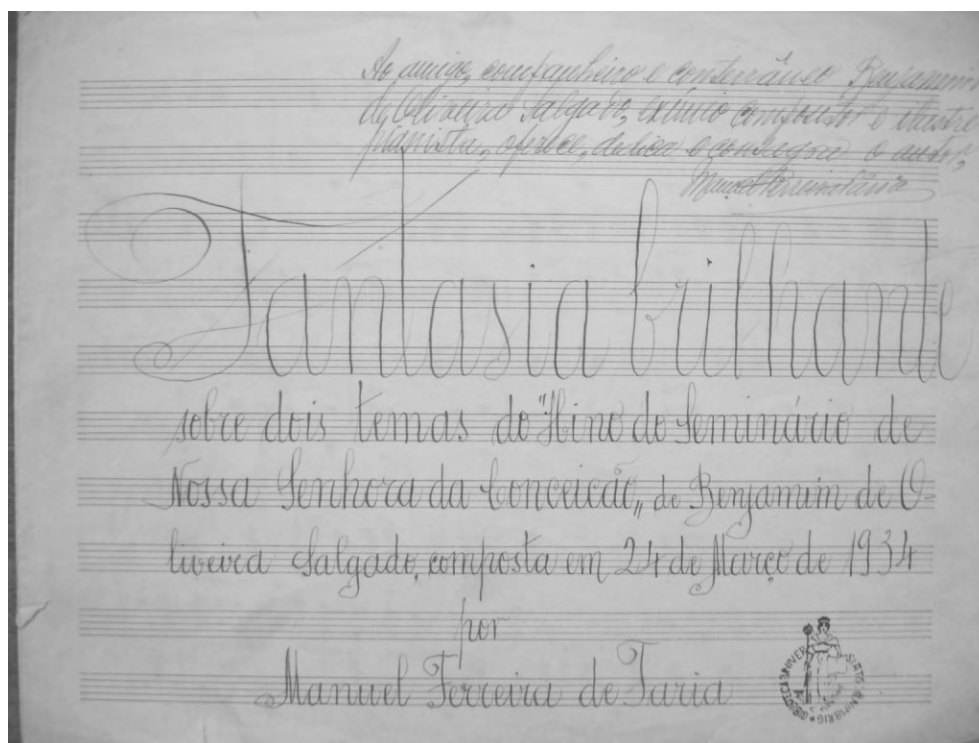 Ao amigo, companheiro e conterrâneo Benjamim
de Oliveira Salgado, exímio compositor e ilustre
pianista, oferece, dedica e consagra o autor,
Manuel Ferreira Faria
Fantasia brilhante
sobre dois temas do "Hino do Seminário de
Nossa Senhora da Conceição„ de Benjamim de O-
liveira Salgado, composta em 24 de Março de 1934
por
Manuel Ferreira de Faria